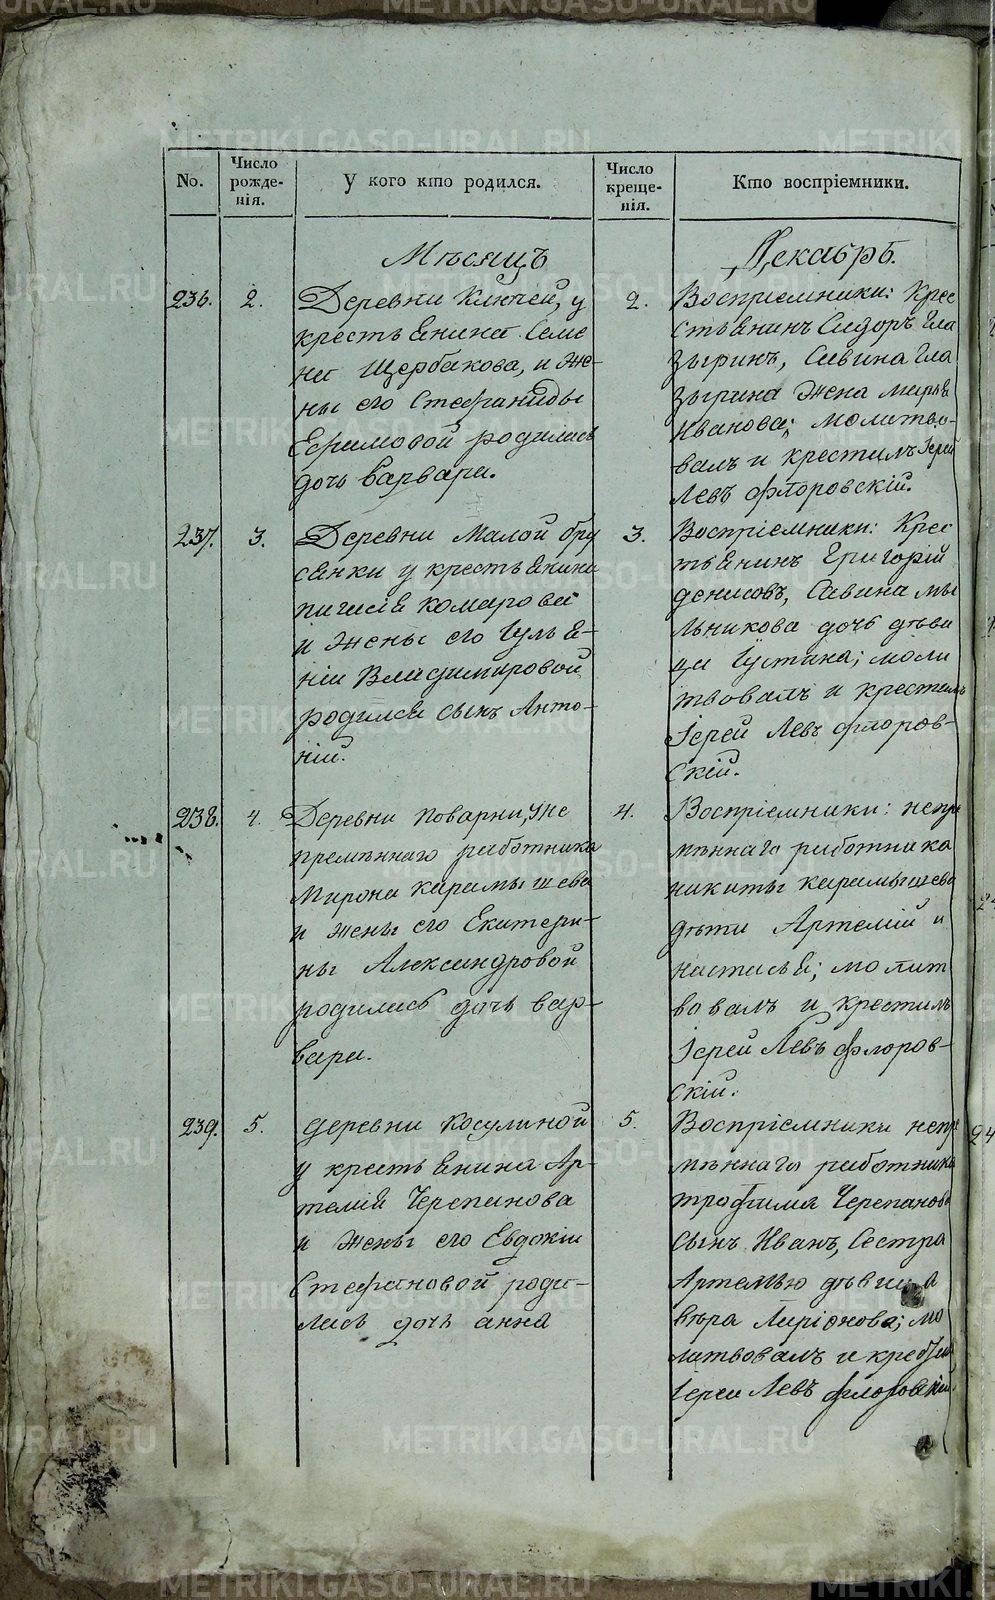 No.
Число рожде-нія.
У кого кто родился.
Число креще-нія.
Кто воспріемники.
Мѣсяцъ
Декабрь.
236.
2.
Деревни Ключей, у
крестьянина Семе
на Щербакова, и же-
ны его Стефаниды
Ефимовой родилась
дочь Варвара.
2.
Воспріемники: Крес
стьянинъ Сидоръ Гла
зыринъ, Савина Гла
зырина жена Марья
Иванова; молитво-
валъ и крестилъ Іерей
Левъ Флоровскій.
237.
3.
Деревни Малой бру
сянки у крестьянина
комарова
и жены его Улья-
ніи Владимировой
родился сынъ Анто-
ній.
3.
Воспріемники: Крес
тьянинъ Григорій
денисовъ, Савина мы
льникова дочь дѣви
ца Устина; моли
твовалъ и крестилъ
Іерей Левъ Флоров-
скій.
238.
4.
Деревни Поварни, у не
премѣннаго работника
Мирона карамышева
и жены его Екатери-
ны Александровой
родилась дочь вар-
вара.
4.
Воспріемники: непре
мѣннаго работника
никиты карамышева
дѣти Артемій и
настасья; молит
вовалъ и крестилъ
Іерей Левъ Флоров-
скій.
239.
5.
деревни Косулиной
у крестьянина Ар-
темія Черепанова
и жены его Евдокіи
Стефановой роди-
лась дочь анна
5.
Воспріемники непре
мѣннаго работника
трофима Черепанова
сынъ Иванъ, Сестра
Артемью дѣвица
вѣра Ларіонова; мо
литвовалъ и крестилъ
Іерей Левъ флоровскій.
METRIKI.GASO-URAL.RU